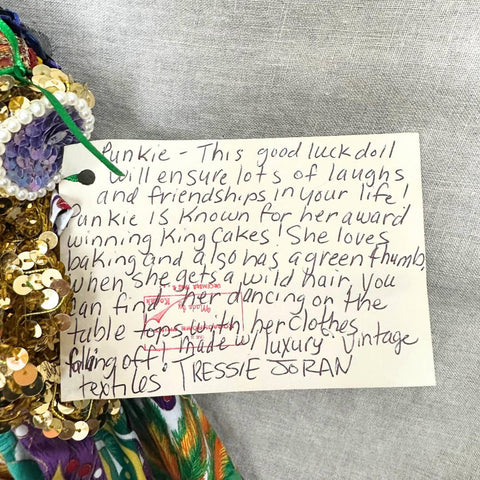 Punkie - This good luck doll
will ensure lots of laughs
and friendships in your life!
Punkie is known for her award
winning King Cakes! She loves
baking and also has a green thumb,
when she gets a wild hair, you
can find her dancing on the
table tops with her clothes
falling off. Made w/ luxury vintage
textiles TRESSIE JORAN